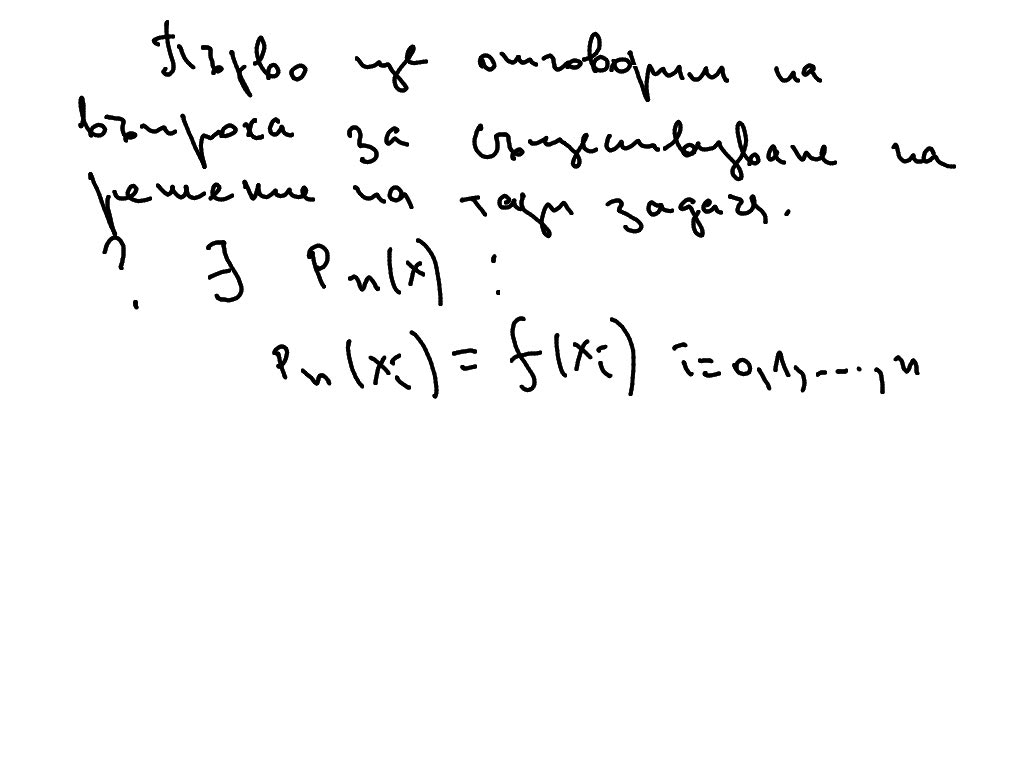 Първо ще отговорим на
въпроса за съществуване на
решение на тази задача.
? ∃ Pn(x) :
Pn(xi) = f(xi) i=0,1,...,n